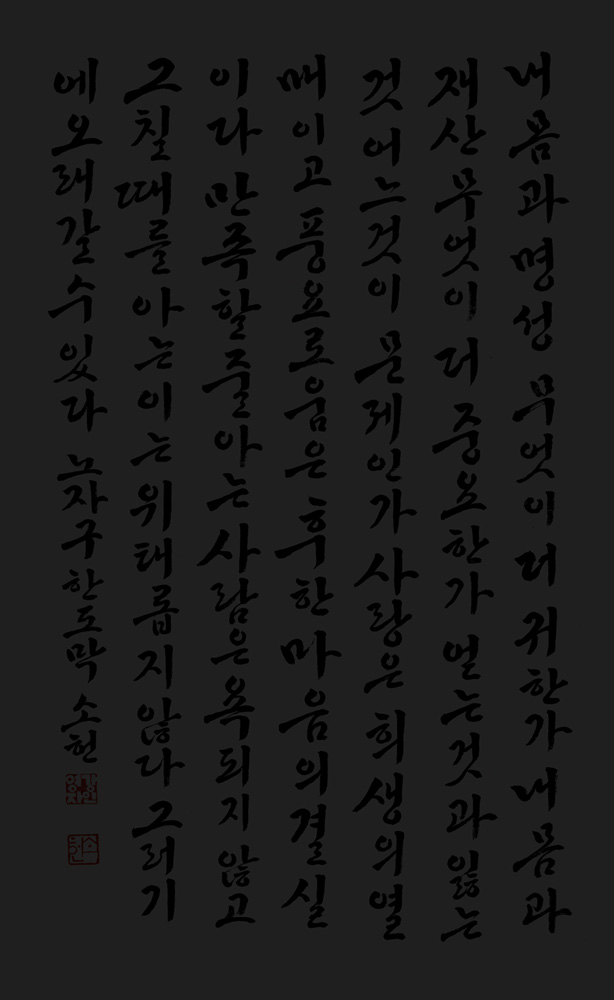 내몸과명성 무엇이 더 귀한가 내 몸과
재산 무엇이 더 중요한가 얻는것과 잃는
것 어느것이 문제인가 사랑은 희생의 열
매이고 풍요로움은 후한 마음의 결실
이다 만족할 줄 아는 사람은 욕되지 않고
그칠 때를 아는 이는 위태롭지 않다 그러기
에 오래갈 수 있다 노자구 한 도막 소헌